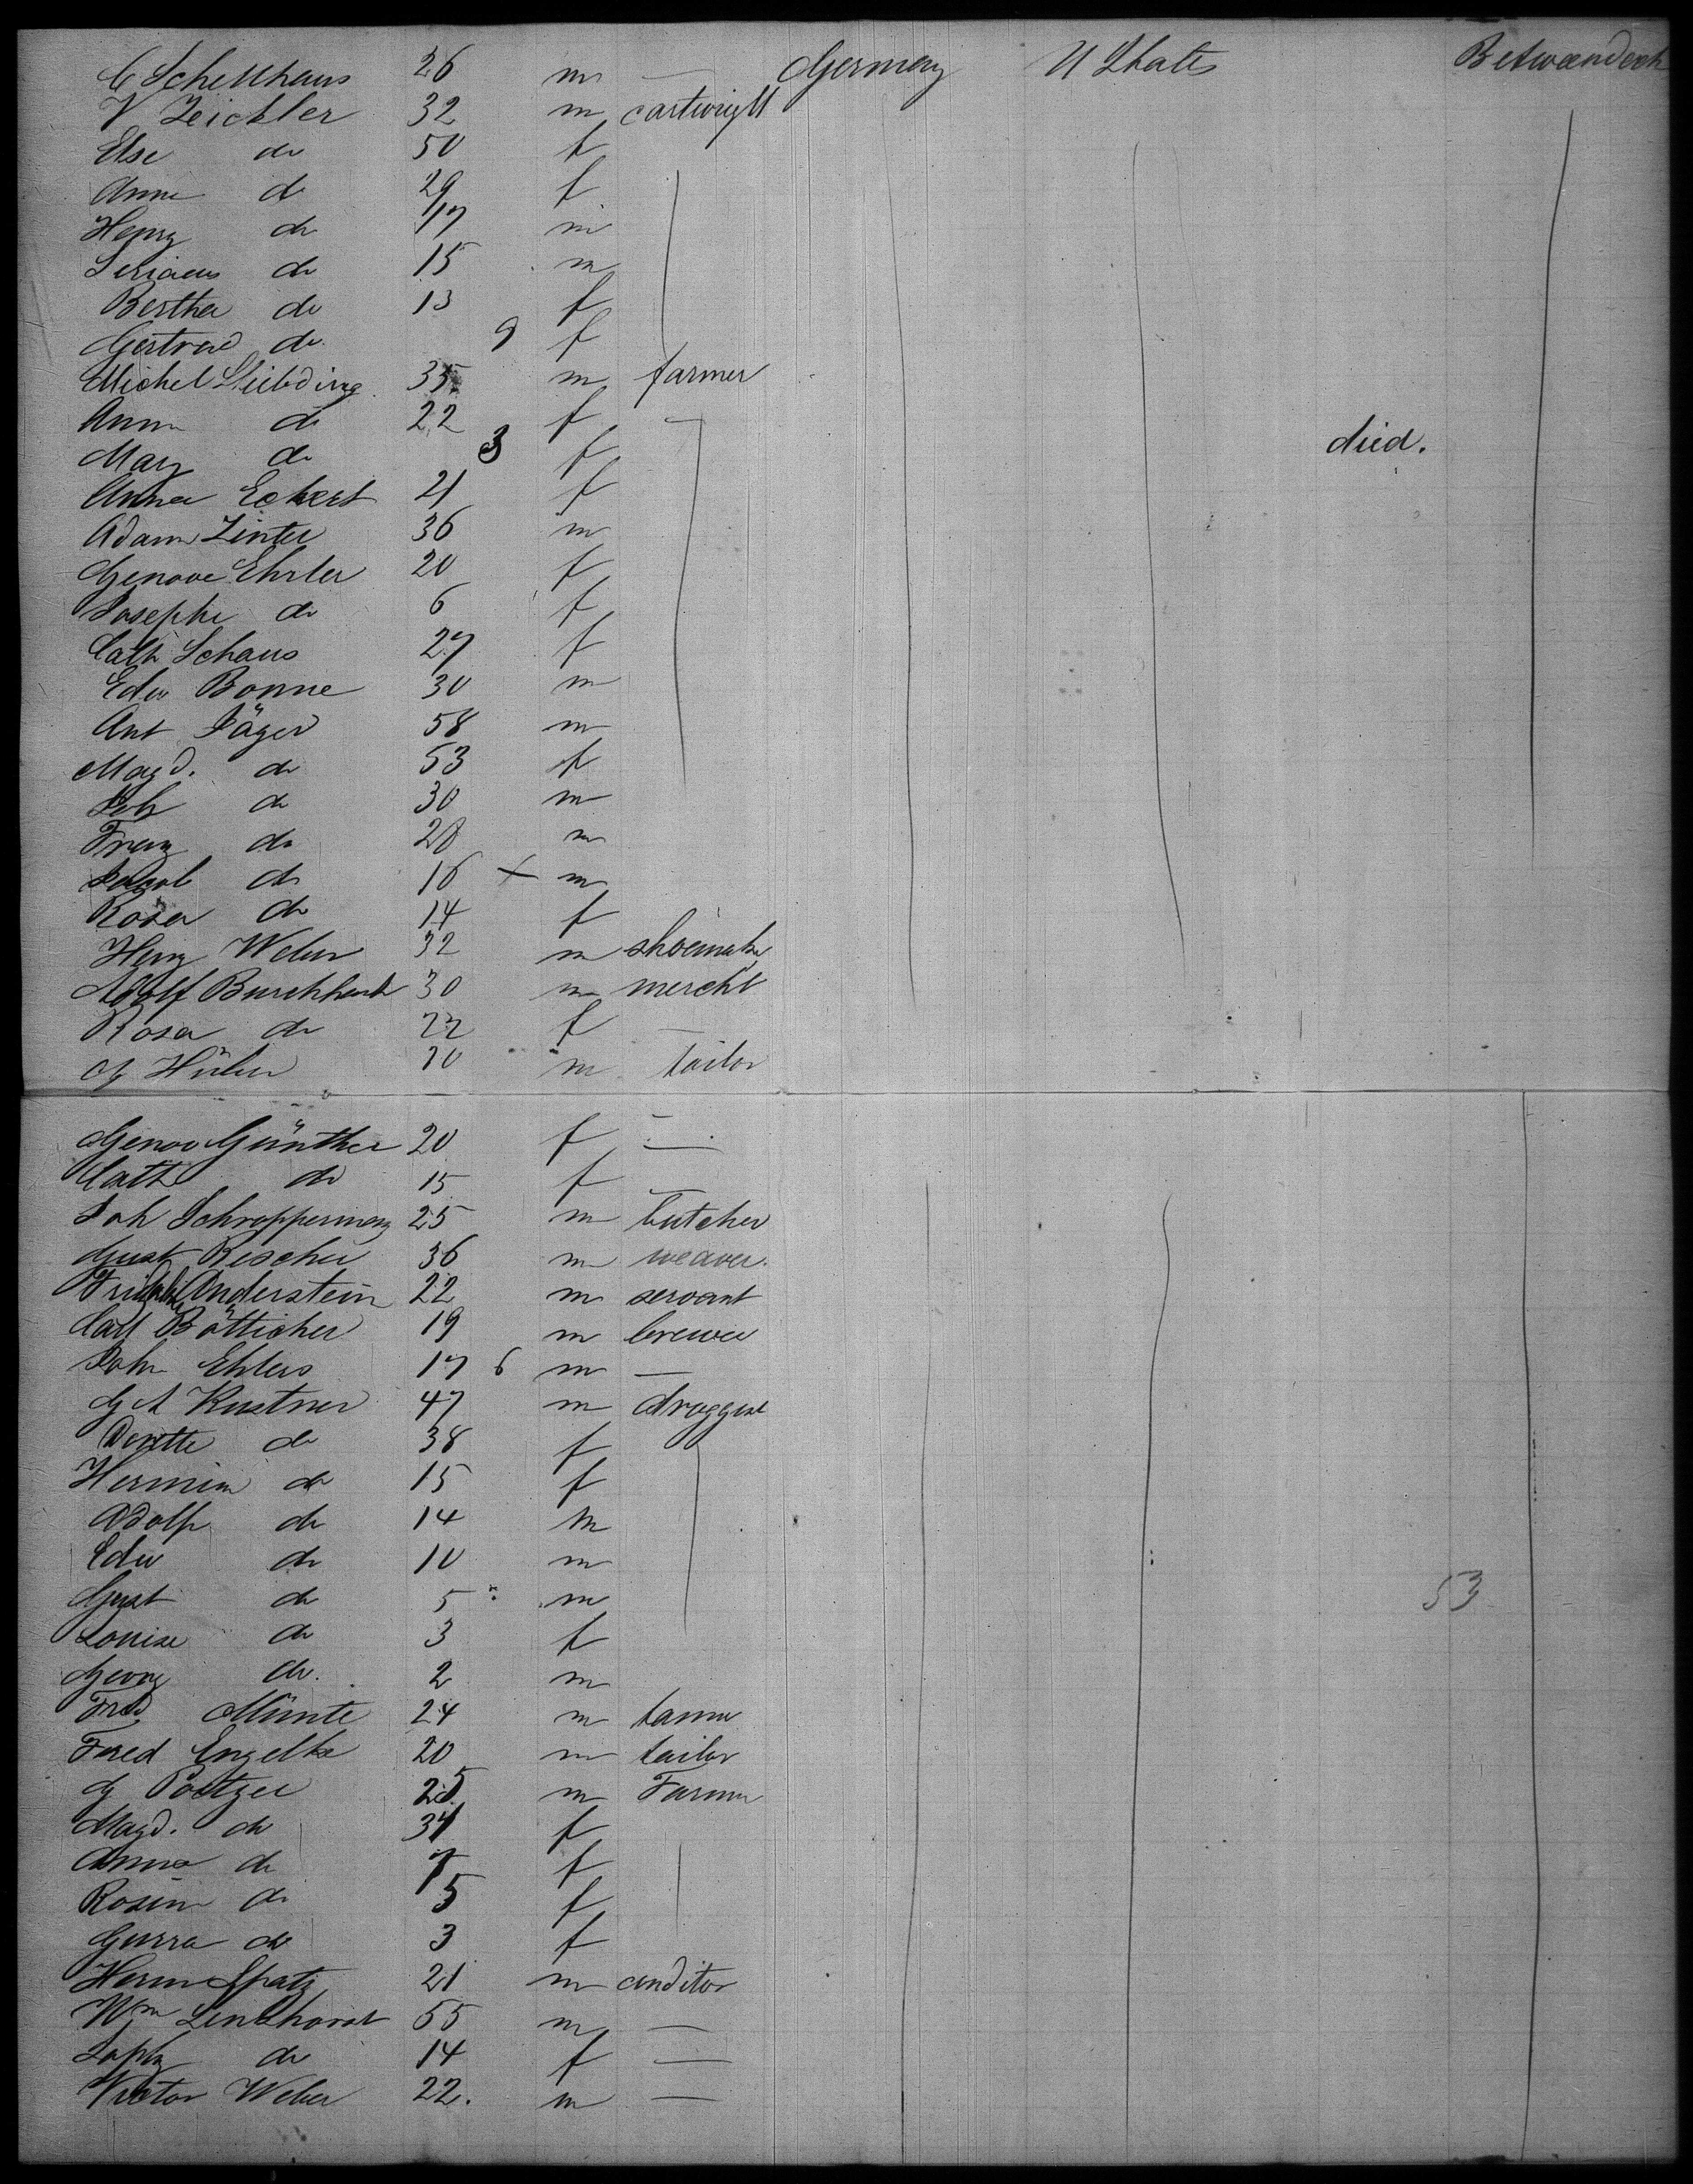 C Schellhaus 26 m — Germany U States Betweendeck
V Zeichler 32 m cartwright
Else do 50 f
Anna do 29 f
Henry do 17 m
do 15 m
Bertha do 13 f
Gertrud do 9 f
Michel 35 m farmer
Anna do 22 f —
Mary do 3 f died.
Anna Eckert 21 f
Adam Zinter 36 m
Genove Ehrler 20 f
Josephe do 6 f
Cath Schaus 27 f
Edw Bonne 30 m
Ant Jäger 58 m
Magd. do 53 f
Joh do 30 m
Franz do 28 m
Jacob do 16 + m
Rosa do 14 f
Henry Weber 32 m shoemaker
Adolf Burchhardt 30 m mercht
Rosa do 22 f —
G Hüber 20 m tailor
Genov Günther 20 f —
Cath do 15 f —
Joh 25 m butcher
Gust Rischer 36 m weaver.
Anderstein 22 m servant
Carl Bötticher 19 m brewer
John Ehlers 17 6 m —
G A Kustner 47 m druggist
Dorette do 38 f
Hermin do 15 f
Adolf do 14 m
Edw do 10 m
Gust do 5 m 53
Louise do 3 f
Georg do. 2 m
Fred Münte 24 m tanner
Fred Engelke 20 m tailor
G Poetzer 25 m Farmer
Magd. do 34 f
Anna do 7 f
Rosin do 5 f
do 3 f
Herm Spatz 21 m conditor
Wm Linkhorst 55 m —
Sophy do 14 f —
Victor Weber 22. m —